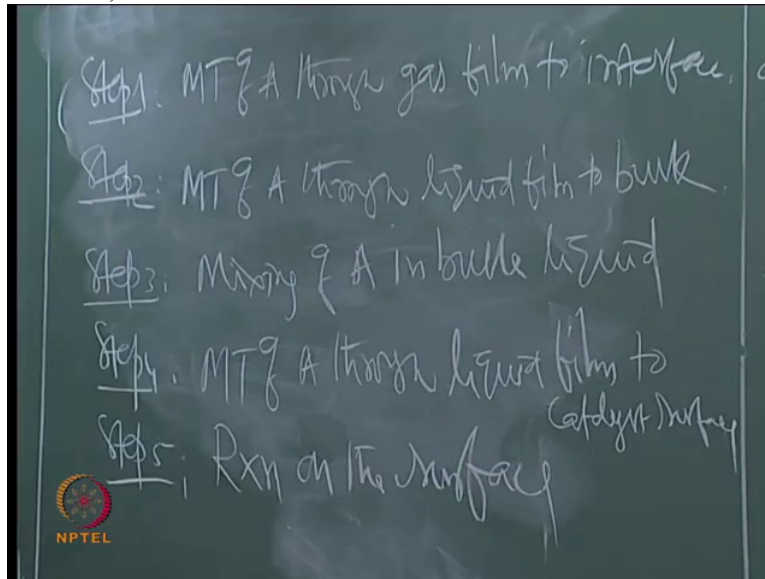 Step1: MT of A through gas film to interface.
Step2: MT of A through liquid film to bulk.
Step3: Mixing of A in bulk liquid
Step4: MT of A through liquid film to
Catalyst surface
Step5: Rxn on the surface
NPTEL